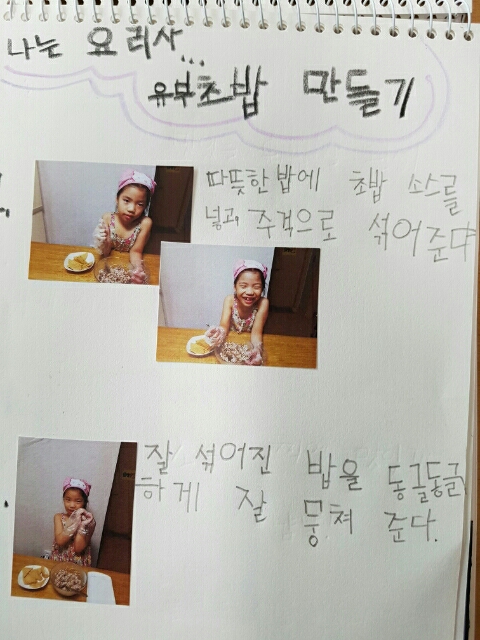 나는 요리사...
유부초밥 만들기
따뜻한 밥에 초밥 소스를
넣고, 주걱으로 섞어준다
잘 섞어진 밥을 동글동글
하게 잘 뭉쳐 준다.